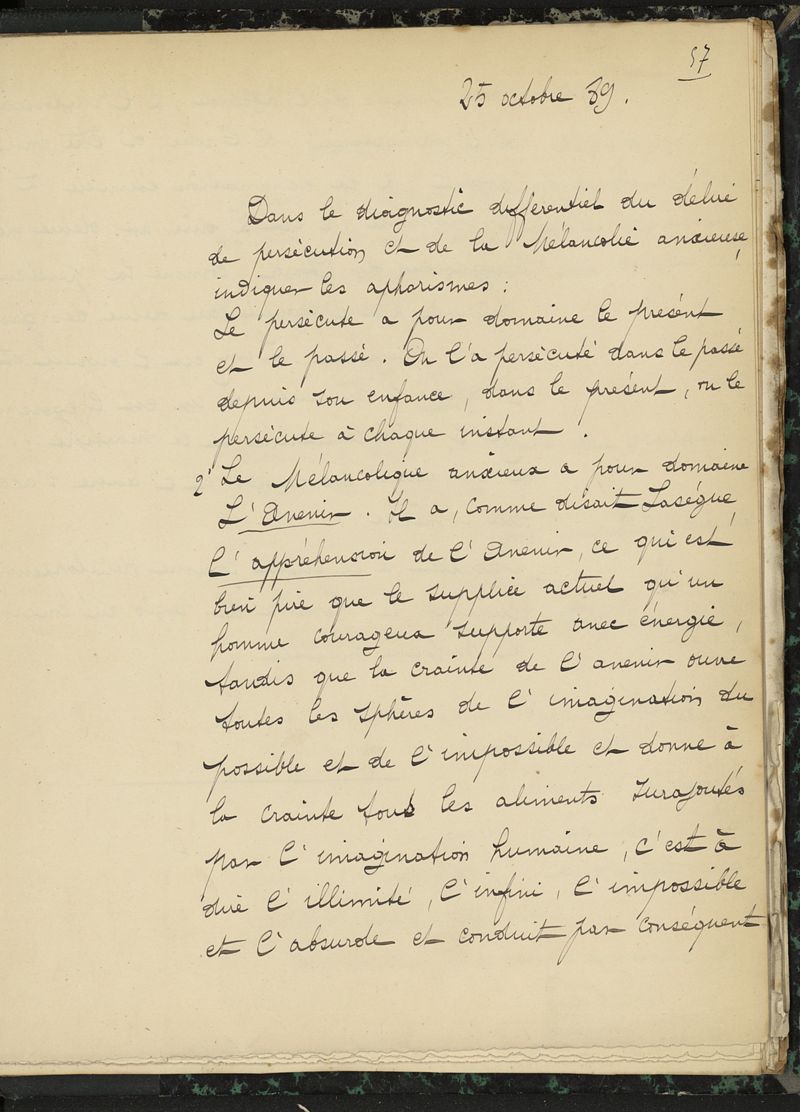 57
25 octobre 39.
Dans le diagnostic différentiel du délire
de persécution et de la Mélancolie anxieuse,
indiquer les aphorismes :
Le persécuté a pour domaine le présent
et le passé. On l'a persécuté dans le passé
depuis son enfance, dans le présent, on le
persécute à chaque instant.
2° Le Mélancolique anxieux a pour domaine
L'Avenir. Il a, comme disait Lasègue,
l'appréhension de l'Avenir, ce qui est
bien pire que le supplice actuel qu'un
homme courageux supporte avec énergie,
tandis que la crainte de l'avenir ouvre
toutes les sphères de l'imagination du
possible et de l'impossible et donne à
la crainte tous les aliments surajoutés
par l'imagination humaine, c'est à
dire l'illimité, l'infini, l'impossible
et l'absurde et conduit par conséquent